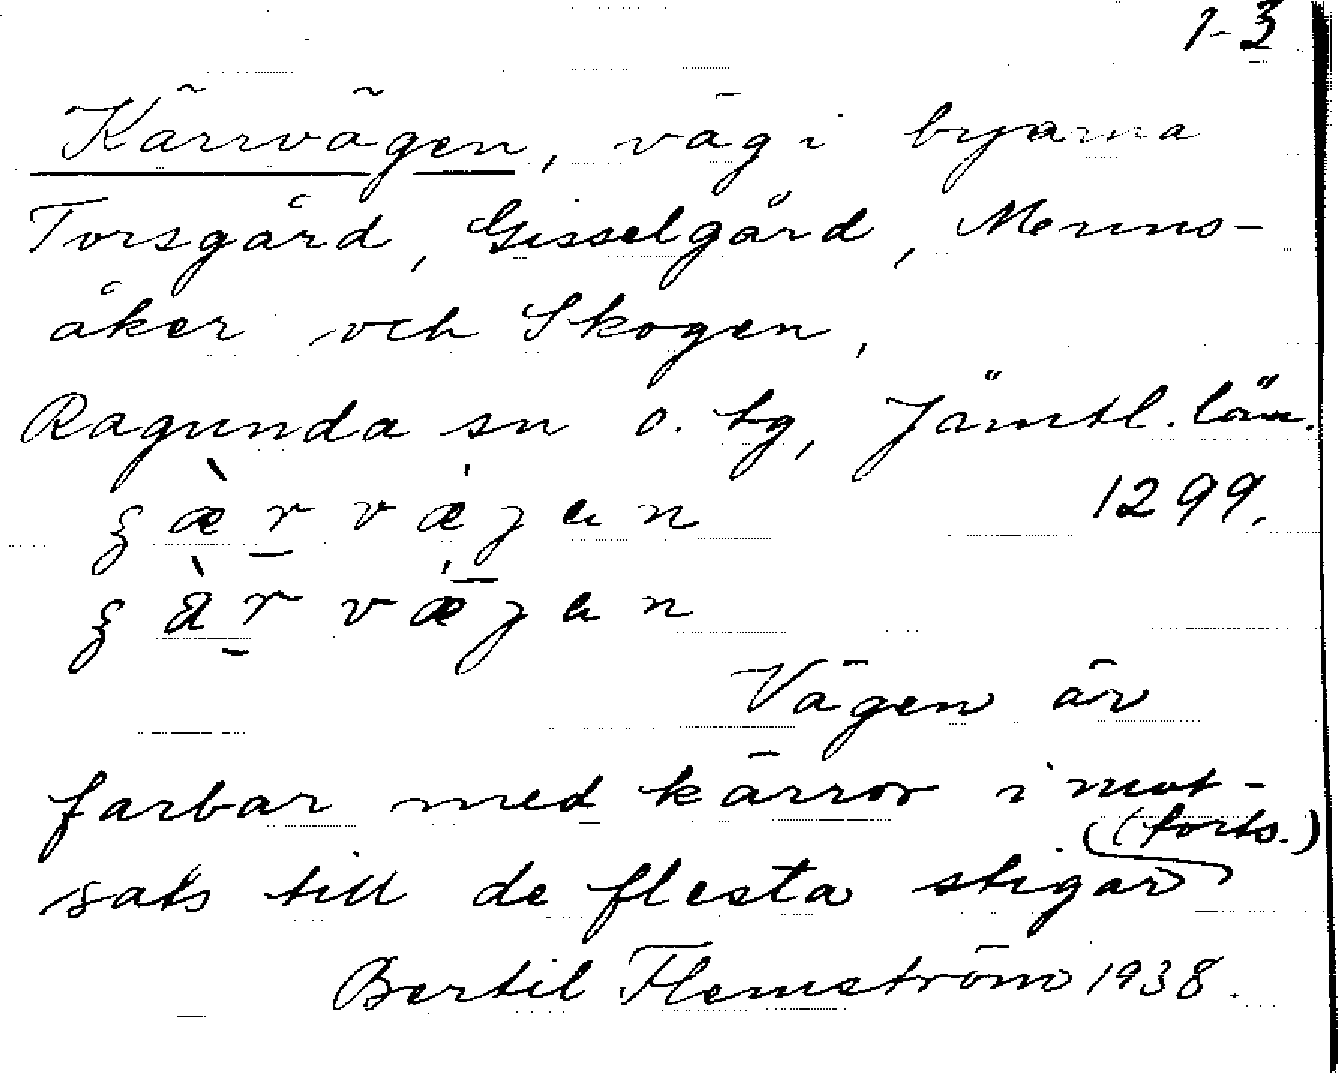 1-3
Kärrvägen, väg i byarna
Torsgård, Gisselgård, Munsåker och Skogen,
Ragunda sn o. tg, Jämtl. län.
1299.
Vägen är
farbar med kärror i mot-
(forts.)
sats till de flesta stigar
Bertil Flemström 1938.